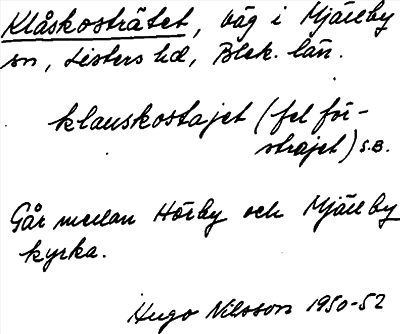 Klåskosträtet, väg i Mjällby
sn, Listers hd, Blek. län.
klauskostajet (fel för
-strajet) s.B.
Går mellan Hörby och Mjällby
kyrka.
Hugo Nilsson 1950-52